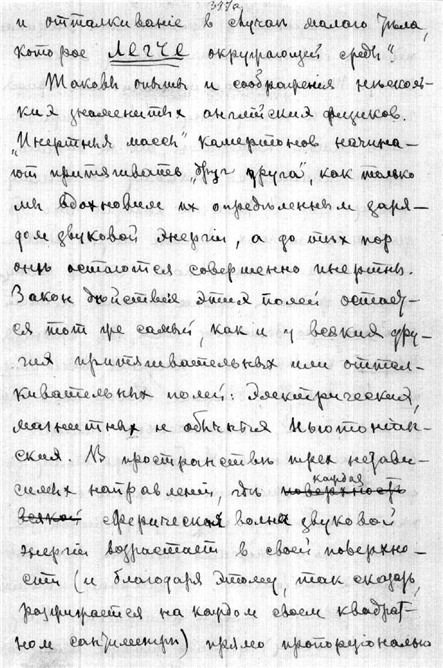 317а
и отталкиваніе в случаѣ малого тѣла,
которое ЛЕГЧЕ окружающей среды".
Таковы опыты и соображенія нѣсколь-
ких знаменитых англійских физиков.
"Инертныя массы" камертонов начина-
ют притягивать "друг друга", как только
мы вдохновим их опредѣленным заря-
дом звуковой энергіи, а до тѣх пор
онѣ остаются совершенно инертны.
Закон дѣйствія этих полей остает-
ся тот же самый, как и у всяких дру-
гих притягивательных или оттал-
кивательных полей: электрических,
магнитных и обычных Ньютоніан-
ских. В пространствѣ трех незави-
симых направленій, гдѣ поверхность каждая
всякой сферическая волна звуковой
энергіи возрастает в своей поверхно-
сти (и благодаря этому, так сказать,
разжижается на каждом своем квадрат-
ном сантиметрѣ) прямо пропорціонально